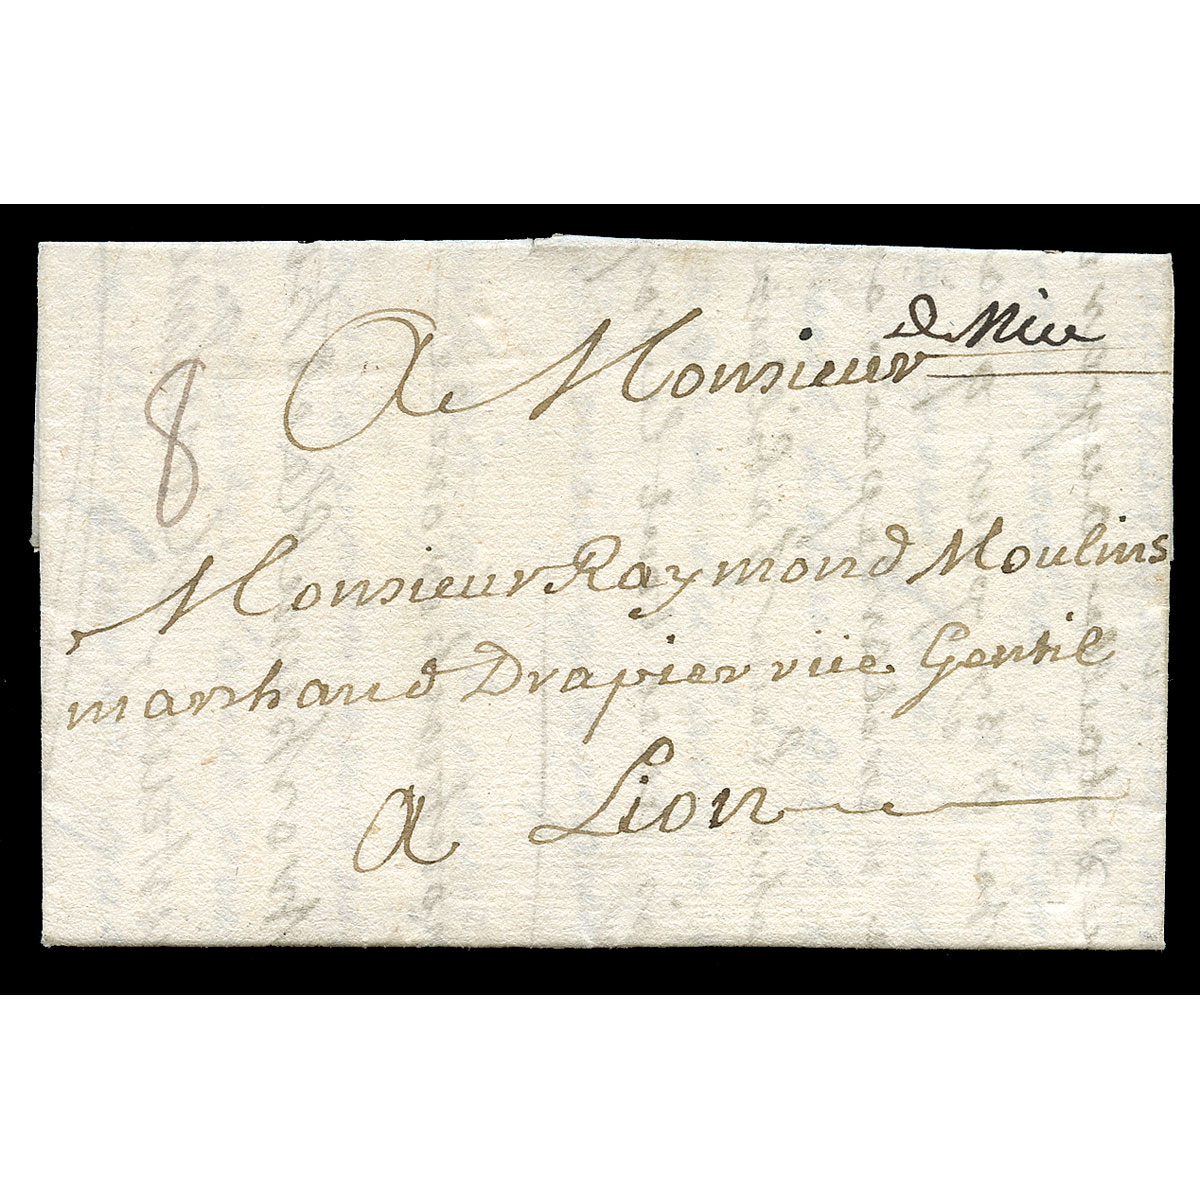 de Nice
A Monsieur
8
Monsieur Raymond Moulins
marchand Drapier rüe Gentil
a Lion